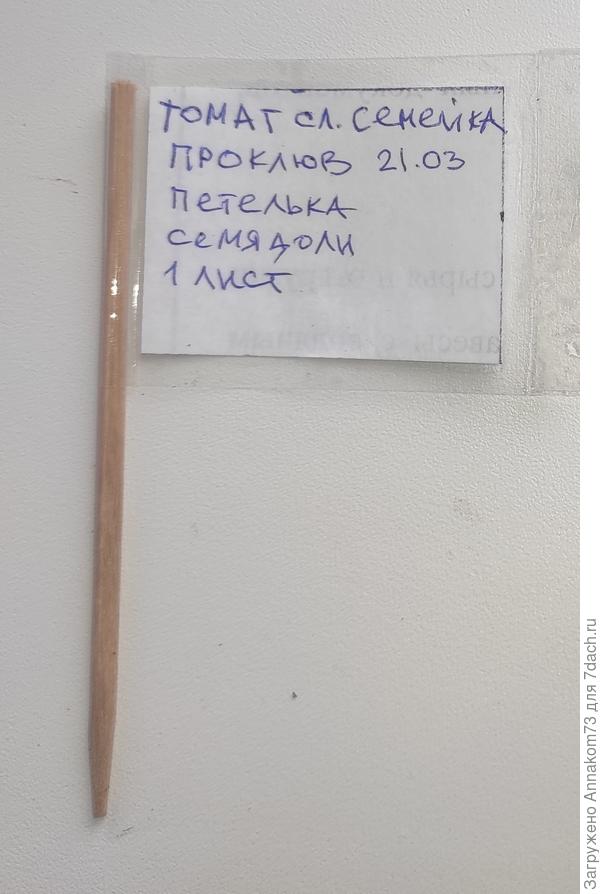 ТОМАТ СЛ. СЕМЕЙКА
ПРОКЛЮВ 21.03
ПЕТЕЛЬКА
СЕМЯДОЛИ
1 ЛИСТ
Загружено Annakom73 для 7dach.ru